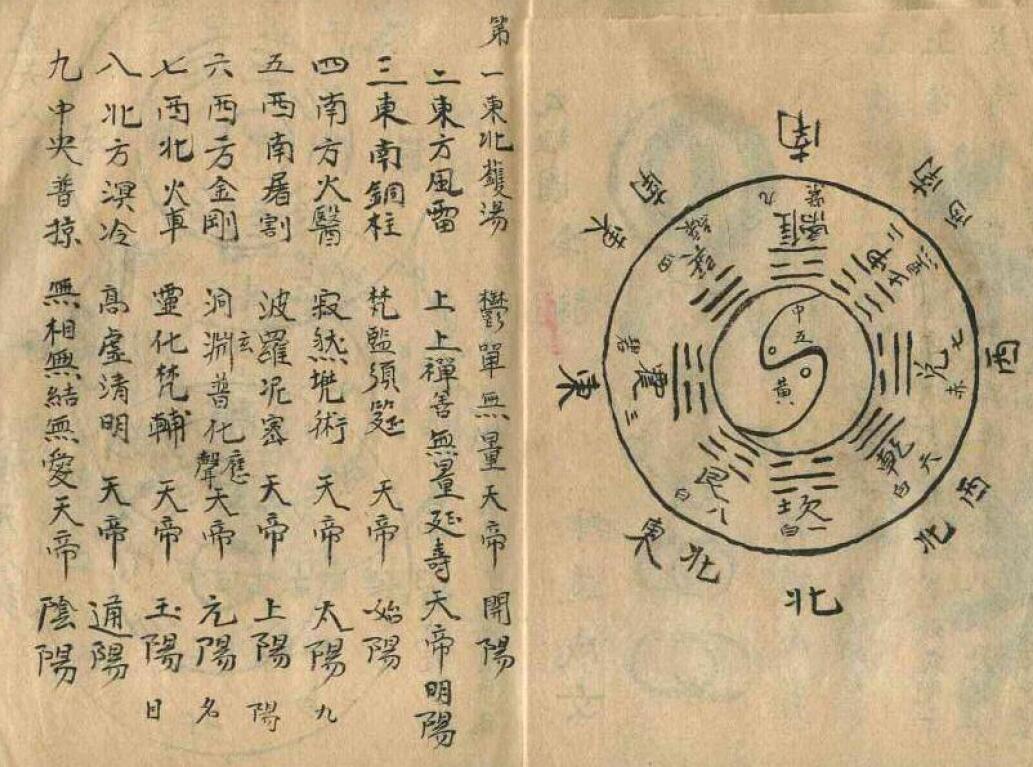 南
西南
西
西北
北
東北
東
東南
離九紫
坤二黑
兌七赤
乾六白
坎一白
艮八白
震三碧
巽四綠
中五黃
第一東北鑊湯 鬱單無量天帝 開陽
二東方風雷 上上禪善無量延壽天帝 明陽
三東南銅柱 梵監須筵 天帝 始陽
四南方火醫 寂然兜術 天帝 太陽 九
五西南屠割 波羅泥密 天帝 上陽 陽
六西方金剛 洞淵玄普化應聲天帝 元陽 名
七西北火車 靈化梵輔 天帝 玉陽 日
八北方溟冷 高虛清明 天帝 通陽
九中央普掠 無相無結無愛天帝 陰陽